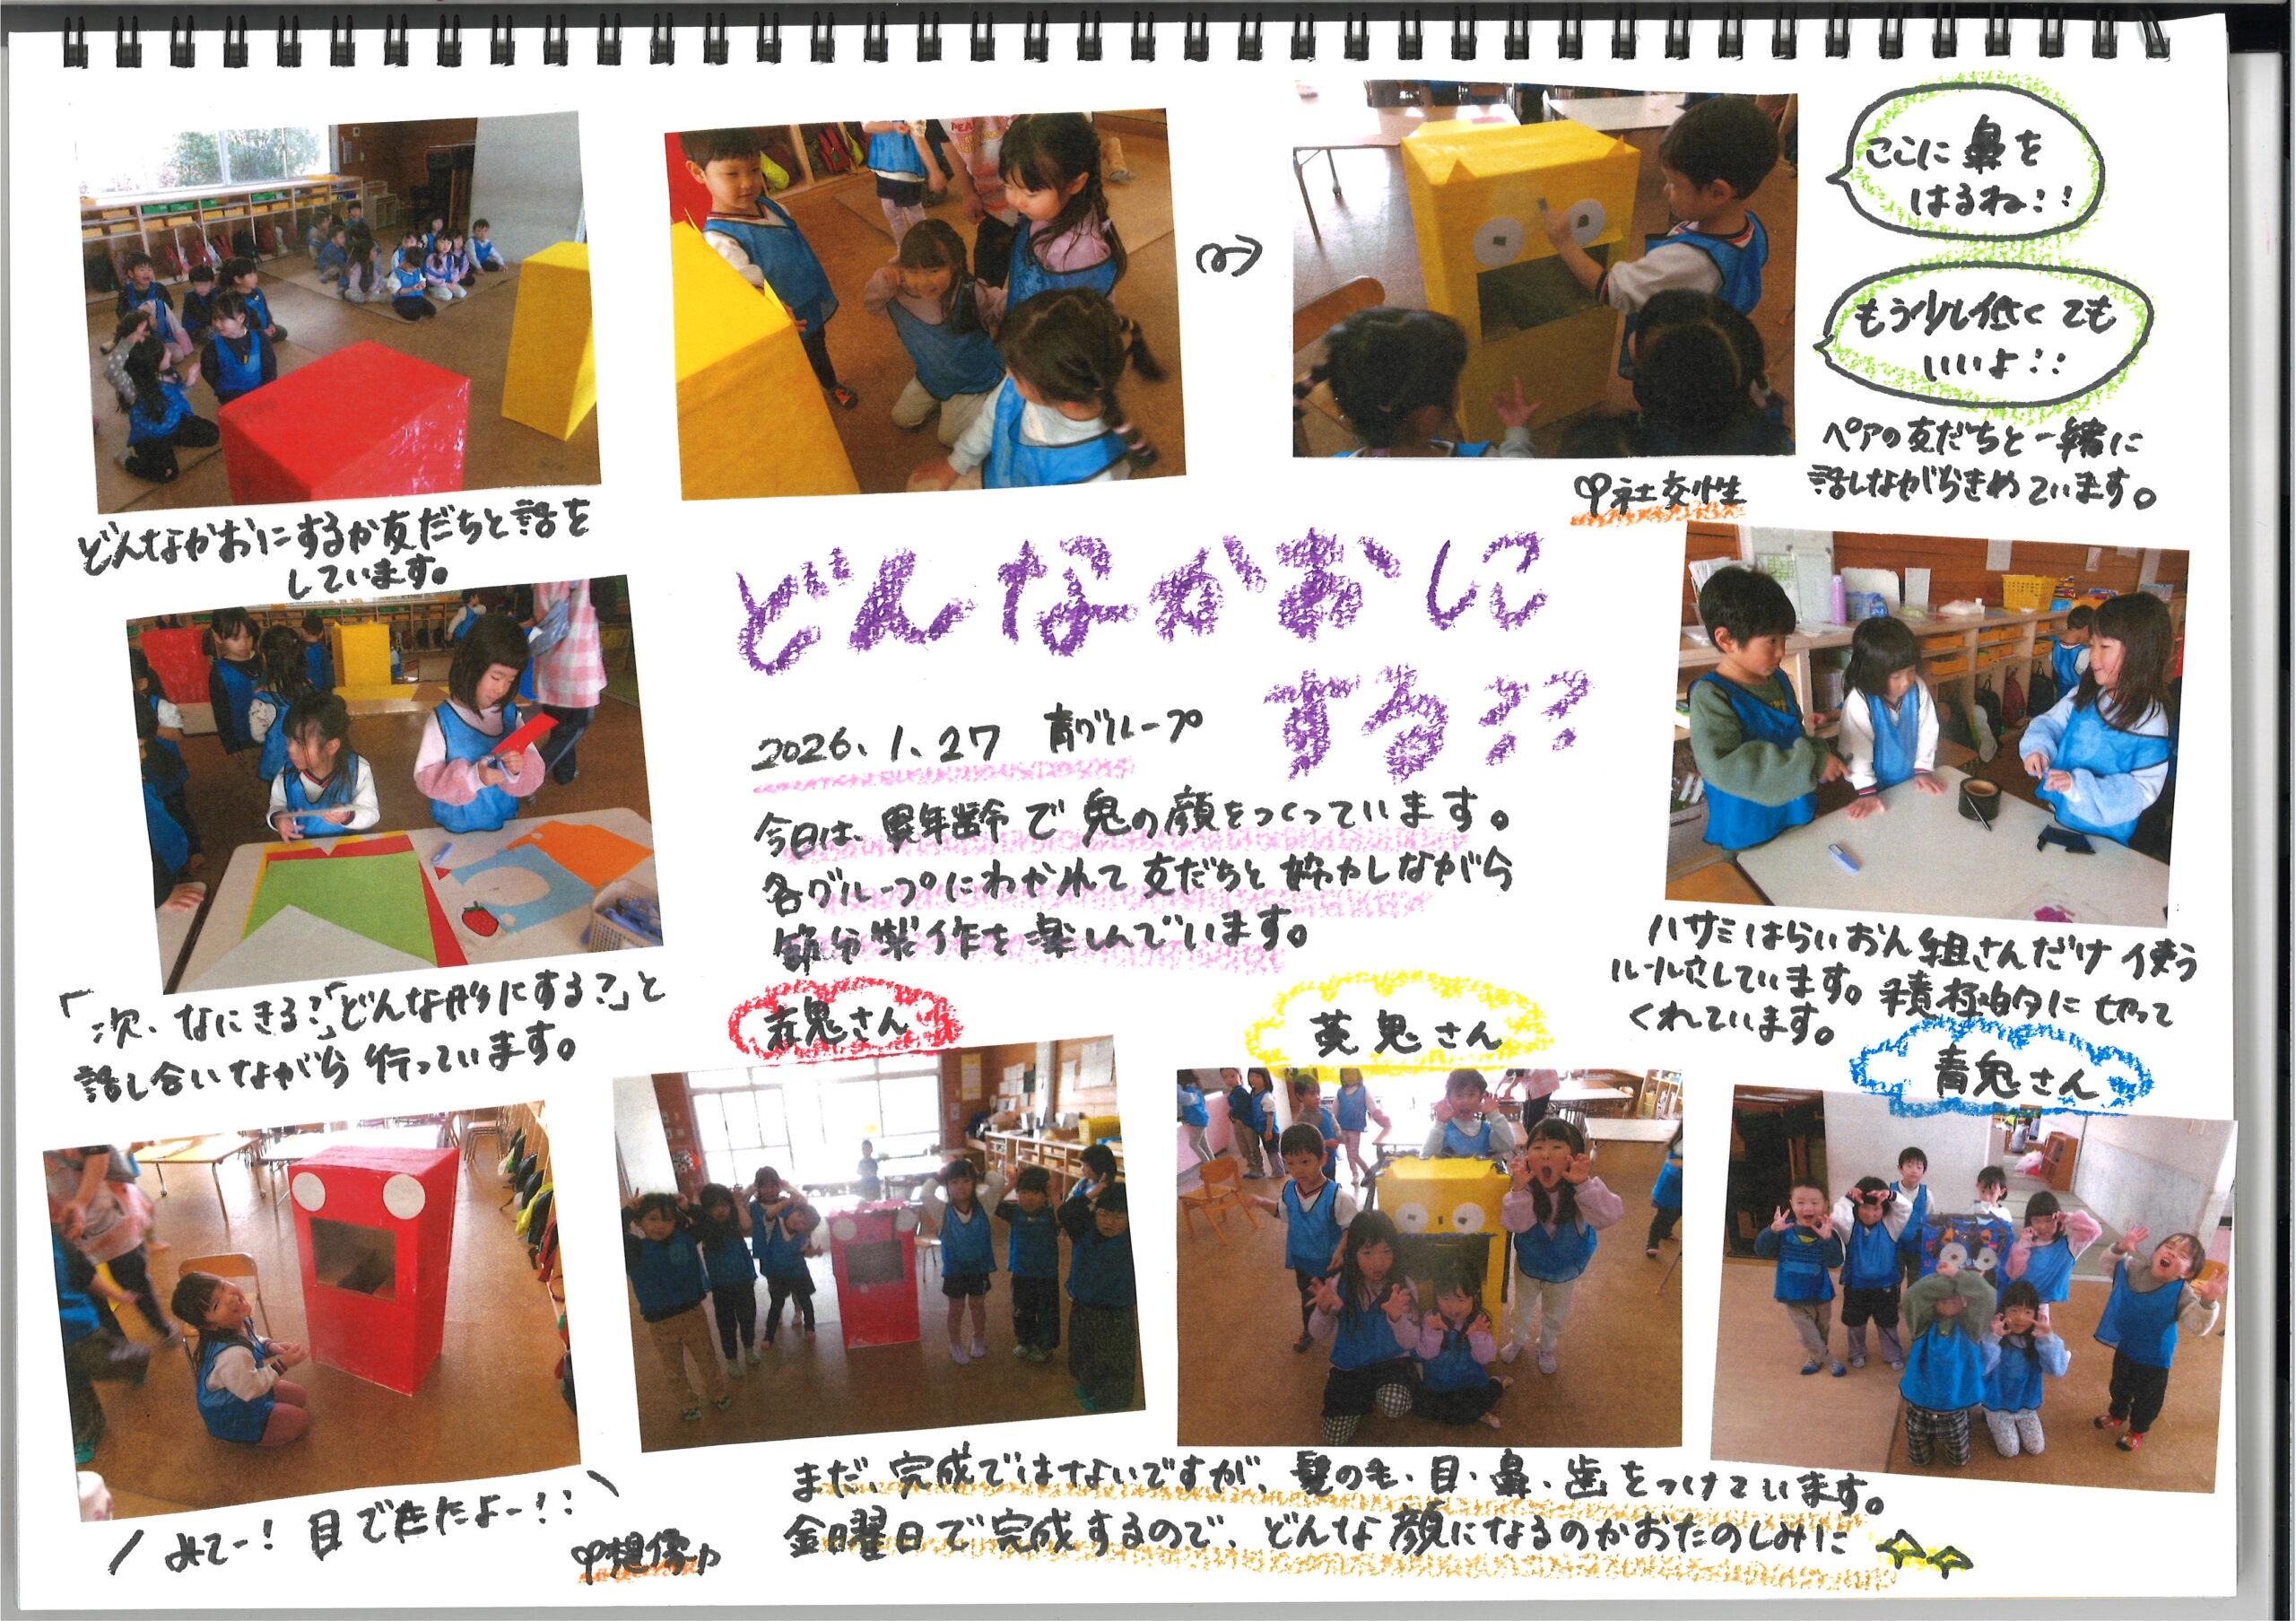 どんなかおにするか友だちと話を
しています。
ここに鼻を
はるね!!
もう少し低くても
いいよ!!
ペアの友だちと一緒に
話しながらきめています。
社交性
どんなかおに
する??
2026.1.27 青グループ
今日は、異年齢で鬼の顔をつくっています。
各グループにわかれて友だちと協力しながら
節分製作を楽しんでいます。
「次、なにきる?」「どんな形にする?」と
話し合いながら行っています。
ハサミはらいおん組さんだけ使う
ルールにしています。積極的に切って
くれています。
赤鬼さん
黄鬼さん
青鬼さん
みてー!目できたよー!!
想像力
まだ、完成ではないですが、髪の毛・目・鼻・歯をつけています。
金曜日で完成するので、どんな顔になるのかおたのしみに